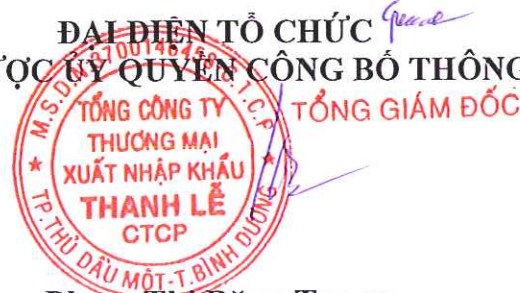 ĐẠI DIỆN TỔ CHỨC
ƯỢC ỦY QUYỀN CÔNG BỐ THÔNG
TỔNG GIÁM ĐỐC
M.S.D.N:3700146458-C.T.C.P
TỔNG CÔNG TY
THƯƠNG MẠI
XUẤT NHẬP KHẨU
THANH LỄ
CTCP
TP.THỦ DẦU MỘT-T.BÌNH DƯƠNG